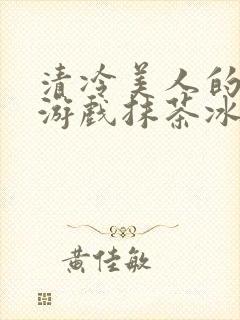 清冷美人的
游戏抹茶冰
黄佳敏